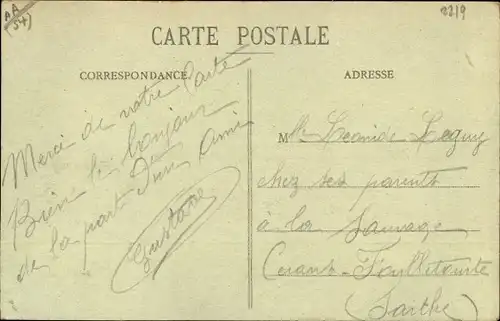 AA
(54)
2219
CARTE POSTALE
CORRESPONDANCE
ADRESSE
Merci de votre Carte
Bien le bonjour
de la part d'un Ami
Gustave
Mlle Leonide Leguy
chez ses parents
à la Sauvage
Cerans-Foulletourte
(Sarthe)